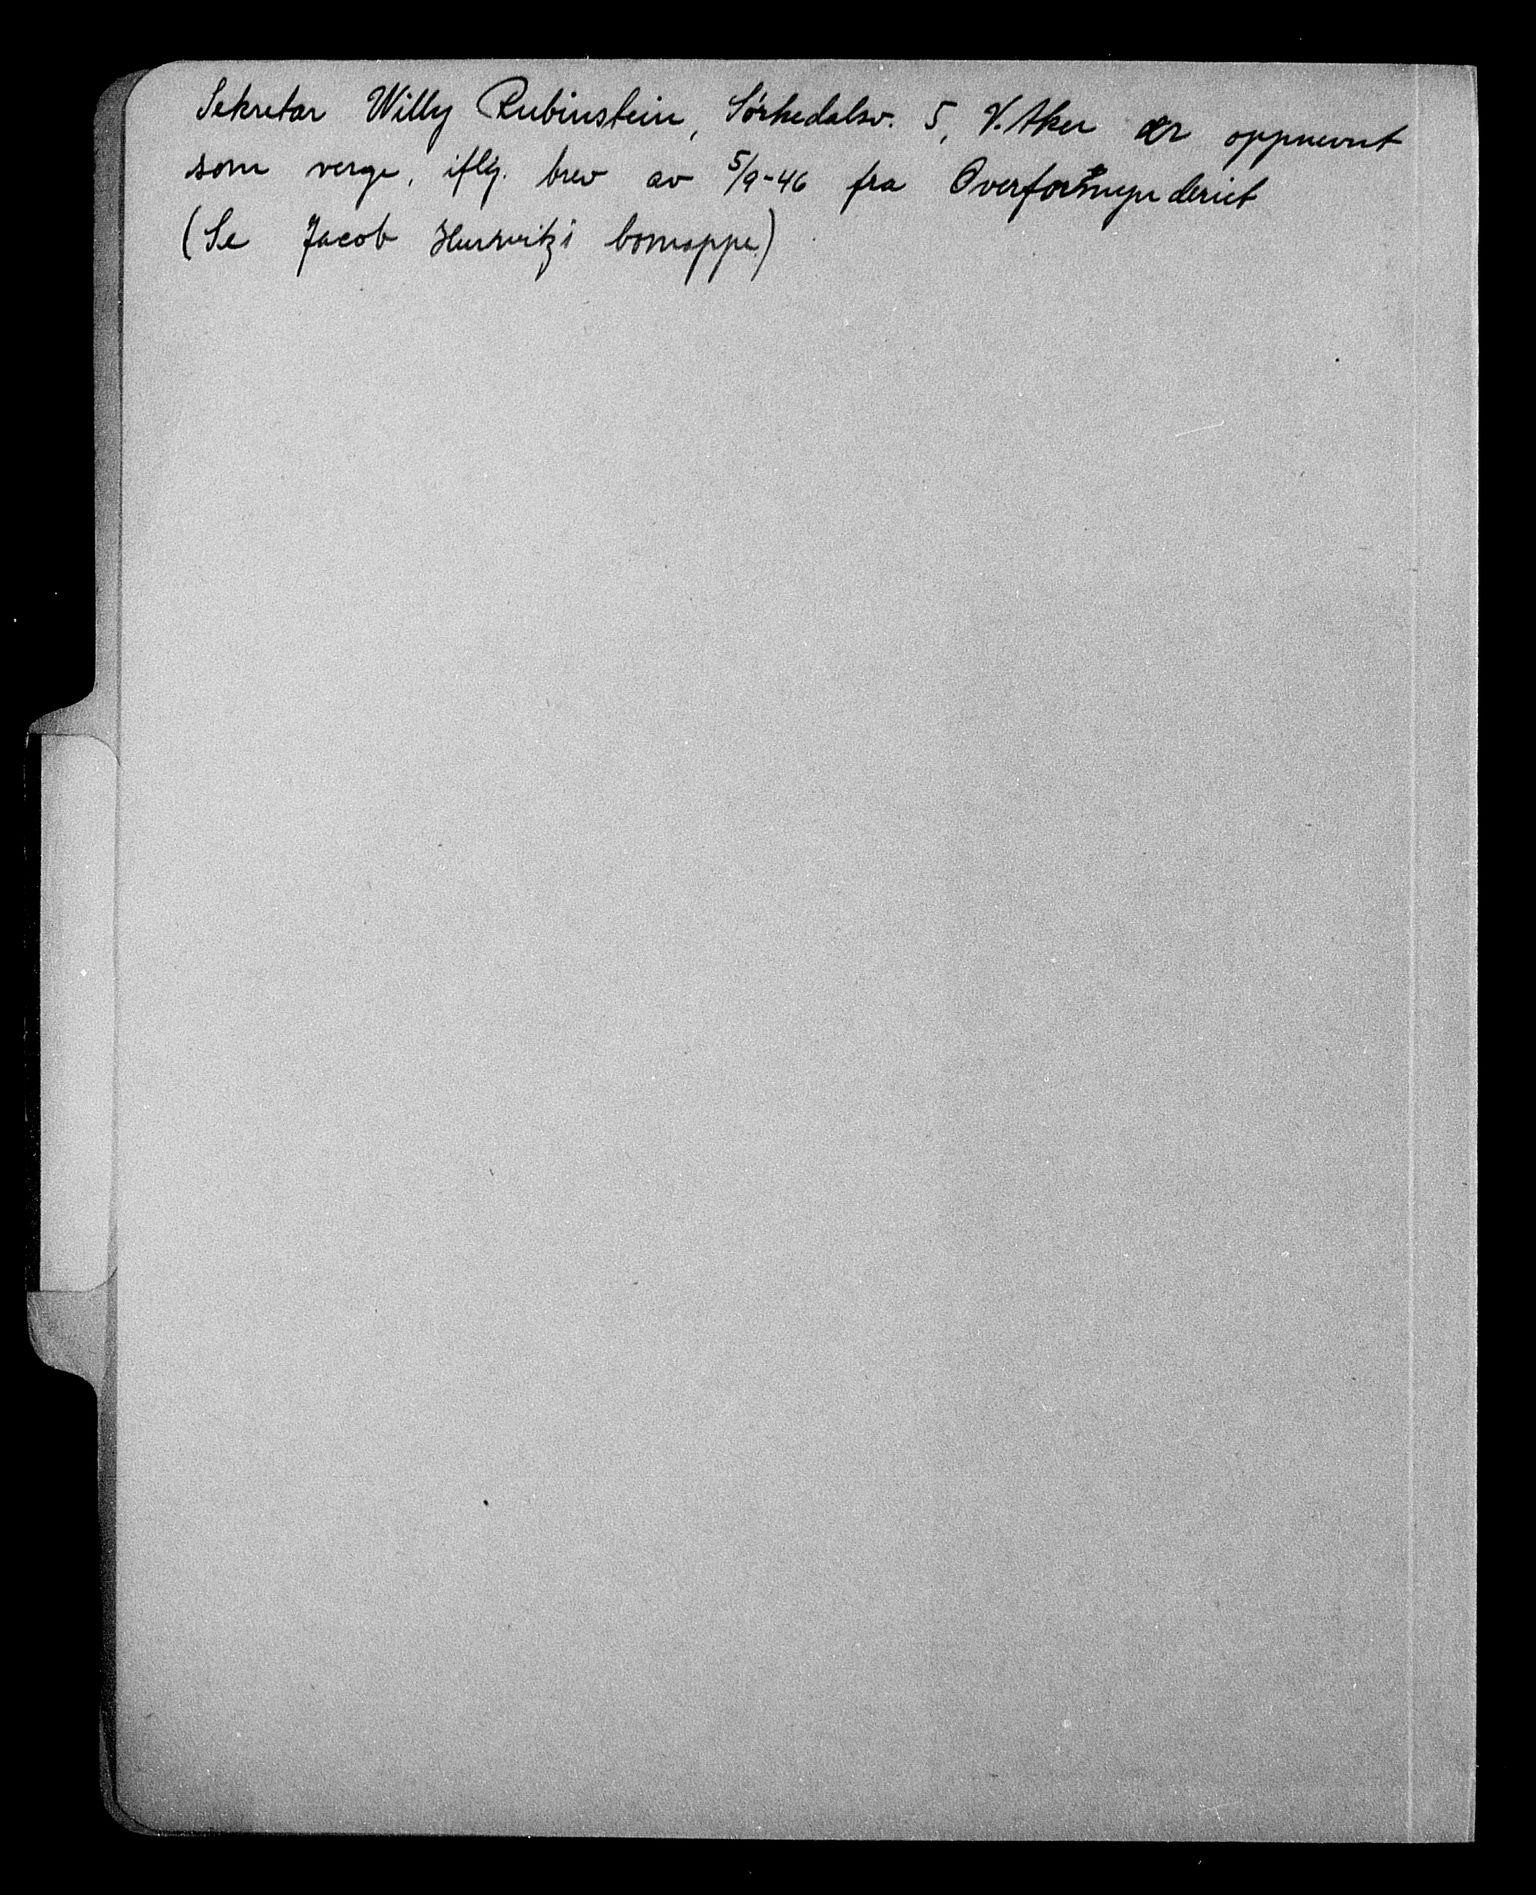 Sekretær Willy Rubinstein, Sørkedalsv. 5, V. Aker er oppnevnt
som verge, iflg. brev av 5/9-46 fra Overformynderiet
(Se Jacob Hurwitz's bomappe.)